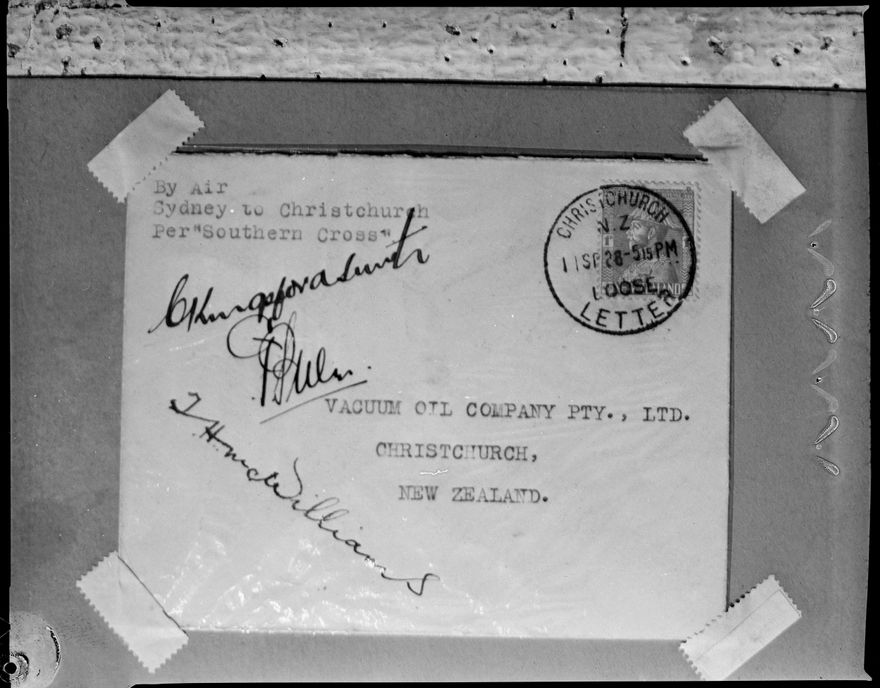 By Air
Sydney to Christchurch
Per "Southern Cross"
CKingsford Smith
CTPUlm.
T H McWilliams
CHRISTCHURCH
N.Z.
11 SP 28-5 15 PM
LOOSE
LETTER
VACUUM OIL COMPANY PTY., LTD.
CHRISTCHURCH,
NEW ZEALAND.